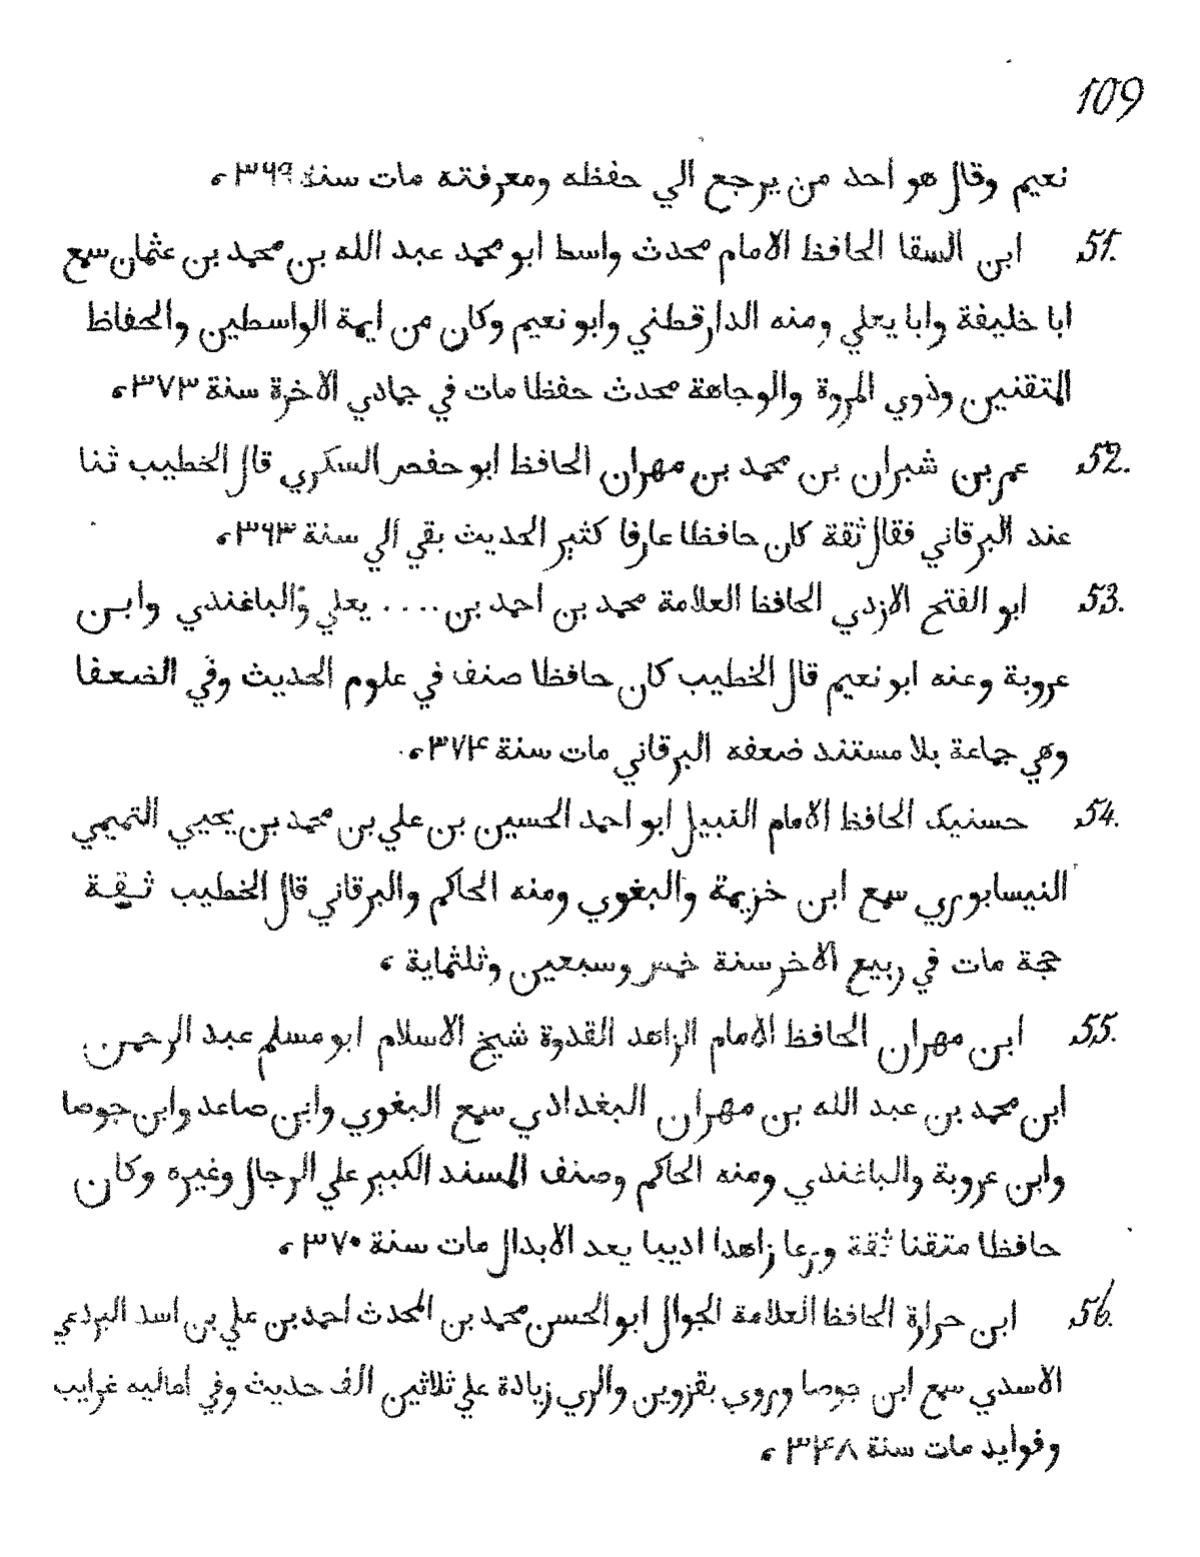 109
نعيم وقال هو احد من يرجع الي حفظه ومعرفته مات سنة ٣٦٩ ،
51. ابن السقا الحافظ الامام محدث واسط ابو محمد عبد الله بن محمد بن عثمان سمع
ابا خليفة وابا يعلي ومنه الدارقطني وابو نعيم وكان من ايمة الواسطين والحفاظ
المتقنين وذوي المروة والوجاهة محدث حفظا مات في جمادي الاخرة سنة ٣٧٣ ،
52. عمر بن شبران بن محمد بن مهران الحافظ ابو حفص السكري قال الخطيب ثنا
عند البرقاني فقال ثقة كان حافظا عارفا كثير الحديث بقي الي سنة ٣٦٣ ،
53. ابو الفتح الازدي الحافظ العلامة محمد بن احمد بن .... يعلي والباغندي وابن
عروبة وعنه ابو نعيم قال الخطيب كان حافظا صنف في علوم الحديث وفي الضعفا
وهي جماعة بلا مستند ضعفه البرقاني مات سنة ٣٧۴ ،
54. حسنيک الحافظ الامام النبيل ابو احمد الحسين بن علي بن محمد بن يحيي التميمي
النيسابوري سمع ابن خزيمة والبغوي ومنه الحاكم والبرقاني قال الخطيب ثقة
حجة مات في ربيع الاخر سنة خمس وسبعين وثلثماية ،
55. ابن مهران الحافظ الامام الزاهد القدوة شيخ الاسلام ابو مسلم عبد الرحمن
ابن محمد بن عبد الله بن مهران البغدادي سمع البغوي وابن صاعد وابن جوصا
وابن عروبة والباغندي ومنه الحاكم وصنف المسند الكبير علي الرجال وغيره وكان
حافظا متقنا ثقة ورعا زاهدا اديبا يعد الابدال مات سنة ٣٧٠ ،
56. ابن حرارة الحافظ العلامة الجوال ابو الحسن محمد بن المحدث احمد بن علي بن اسد البردعي
الاسدي سمع ابن جوصا وروي بقزوين والري زيادة علي ثلاثين الف حديث وفي اماليه غرايب
وفوايد مات سنة ٣۴٨ ،